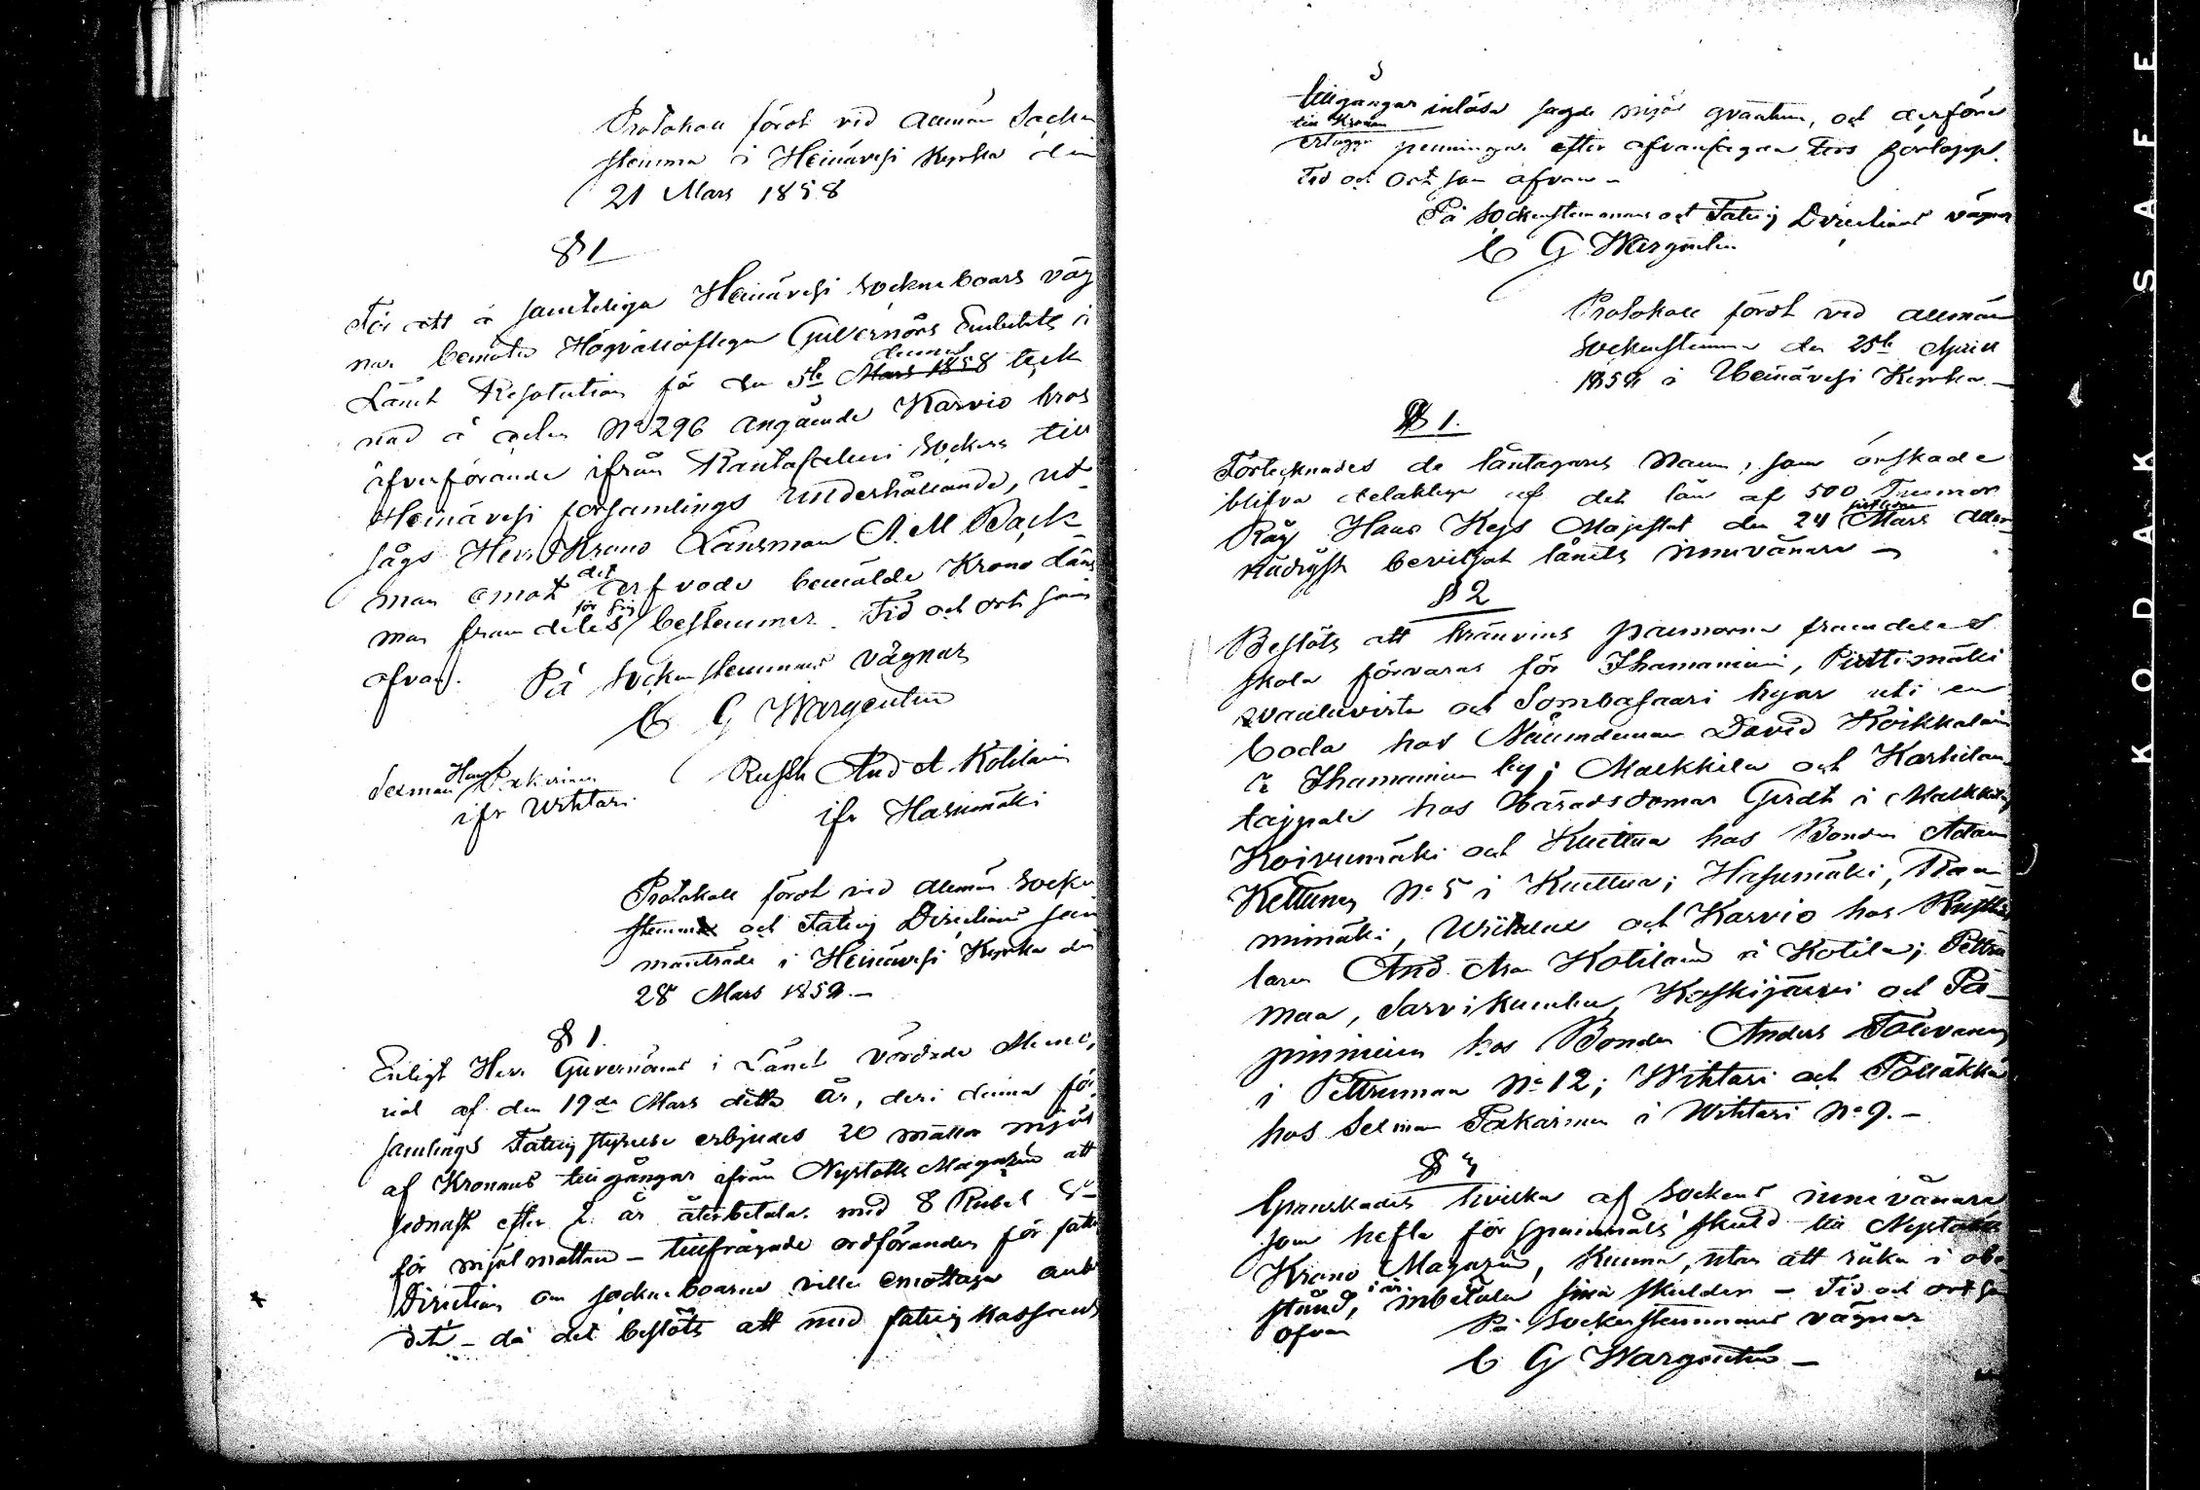 Protokoll fördt vid allmän Socken
stemma i Heinävesi Kyrka den
21 Mars 1858
§ 1
För att å samtelige Heinävesi Sockneboars väg
nar bemöta Högvällofliga Guvernörs Embetets i
Länet Resolution för den 5te Mars 1858 teck
nad å acten No 296 angående Karvio hros
öfverförande ifrån Rantasalmi Sockens till
Heinävesi församlings underhållande, ut-
sågs Herr Krono Länsman A. M Back-
man emot det arfvode bemälde Krono Läns
man framdeles för sig bestämmer. Tid och ort som
ofvan. På Sockenstemmans vägnar
C G Wargentin
Selman Hans Pakarinen Rusth And A Kotilain
ifr Wihtari ifr Hasumäki
Protokoll fördt vid allmän Socken
stemma och Fattig Directions sam
manträde i Heinävesi Kyrka den
28 Mars 1858.—
§ 1.
Enligt Herr Guvernörens i Länet vördade Memo,
rial af den 19de Mars detta år, deri denna för
samlings Fattigstyrelse erbjudes 20 mattor mjöl
af Kronans tillgångar ifrån Nyslotts Magazin att
sednast efter 2 år återbetala med 8 Rubel Sr
för mjölmattan — tillfrågade ordföranden för fatt.
Direction om sockneboarne ville emottaga anbu
det — då det beslöts att med fattig kassans
tillgångar inlösa sagde mjöl qvantum, och derföre
till Kronan
erlägga penningar efter ofvansagde tids förlopp.
Tid och ort som ofvan —
På Sockenstemmans och Fattig Directions vägnar
C G Wargentin
Protokoll fördt vid allmän
Sockenstemma den 25te April
1858 i Heinävesi Kyrka.—
§ 1.
Förtecknades de låntagares namn, som önskade
blifva delaktige af det lån af 500 Tunnor
Råg Hans Kejs Majestät den 24 Mars aller
nådigst beviljat länets innevånare —
§ 2
Beslöts att brännvins pannorna framdeles
skola förvaras för Ihamaniemi, Pirttimäki
och Sombasaari byar uti en
boda hos Nämndeman David Koikkalain
i Ihamaniemi by; Malkkila och Karhilan
taipale hos Häradsdomar Girdt i Malkkila
Koivumäki och Kuittua hos Bonden Adam
Kettunen No 5 i Kuittua; Hasumäki, Raa
mimäki, och Karvio hos Rusthål
laren And. Kotilain i Kotila; Petru
maa, Sarvikumbu, Koskijärvi och Pa-
pinniemi hos Bonden Anders Tolvanen
i Petrumaa No 12; Wihtari och Pölläkkä
hos Selman Pakarinen i Wihtari No 9.—
§ 3
Granskades hvilka af Sockens innevånare
som häfta för spannmåls skuld till Nyslotts
Krono Magazin, kunna, utan att råka i obe
stånd, i år inbetala sina skulder — Tid och ort som
ofvan På Sockenstemmans vägnar
C G Wargentin —
KODAK SAFE